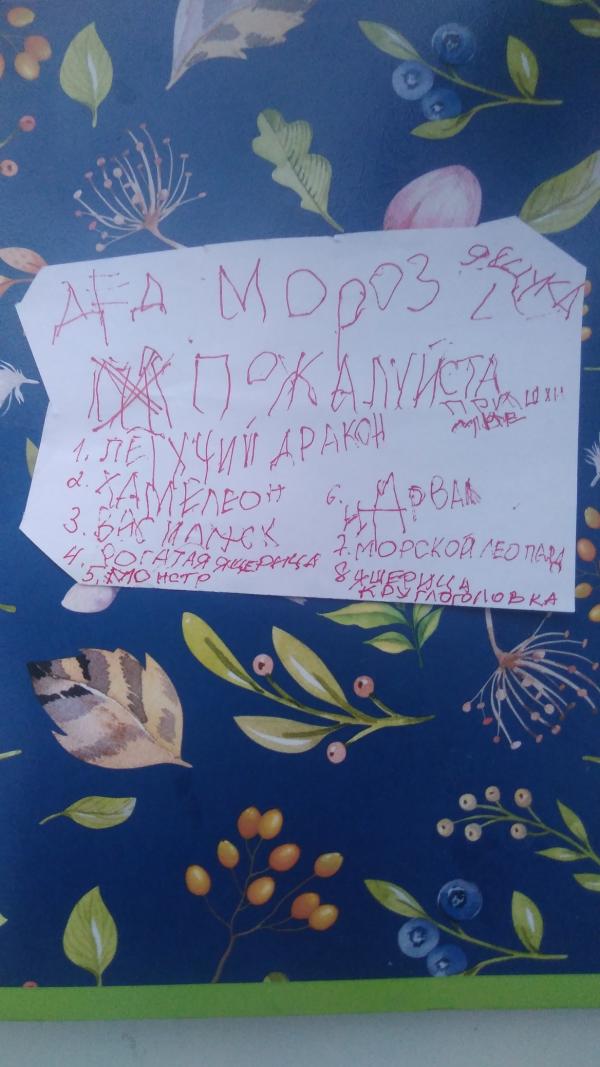 ДЕД МОРОЗ
ПОЖАЛУЙСТА
1. ЛЕТУЧИЙ ДРАКОН
2. ХАМЕЛЕОН
3. ВАСИЛИСК
4. РОГАТАЯ ЯЩЕРИЦА
5. МОНСТР
9. ЩУКА
6. НАРВАЛ
7. МОРСКОЙ ЛЕОПАРД
8 ЯЩЕРИЦА
КРУГЛОГОЛОВКА